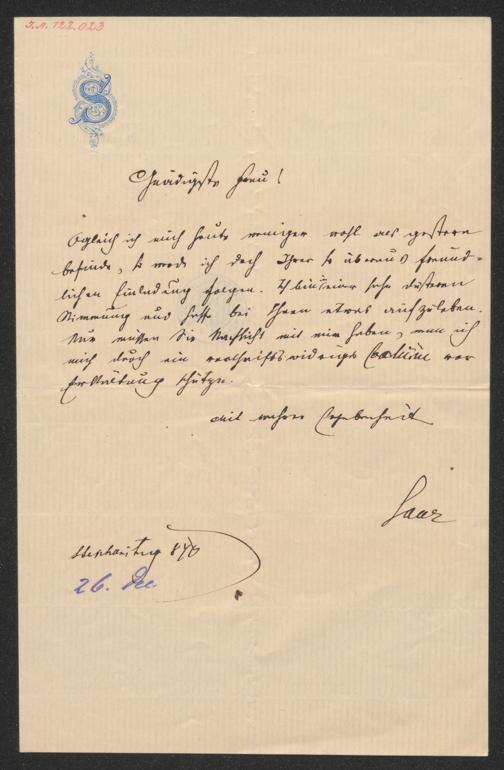 I.N. 122.023
S
Gnädigste Frau!
Obgleich ich mich heute weniger wohl als gestern
befinde, so werde ich doch Ihrer so überaus freund-
lichen Einladung folgen. Ich bin in einer sehr düsteren
Stimmung und hoffe bei Ihnen etwas aufzuleben.
Nur müssen Sie Nachsicht mit mir haben, wenn ich
mich durch ein vorschriftswidriges Costüm vor
Erkältung schütze.
Mit wahrer Ergebenheit
Saar
Stephanitag
26. Dec.